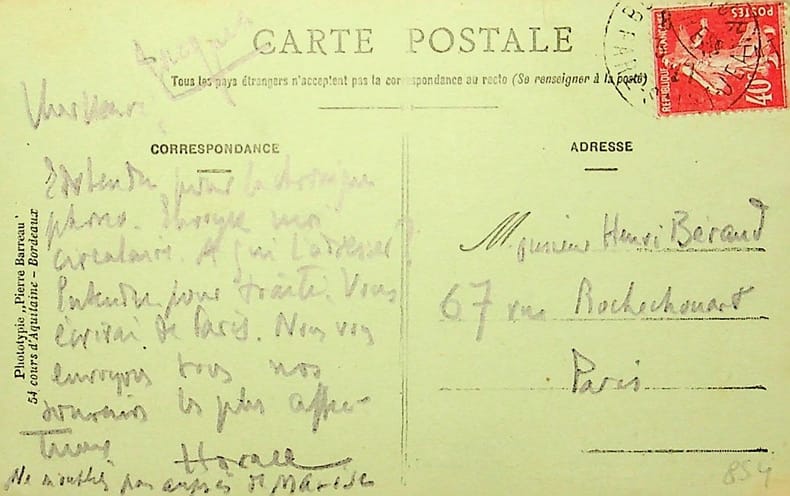 Jacques
CARTE POSTALE
Tous les pays étrangers n'acceptent pas la correspondance au recto (Se renseigner à la poste)
POSTES
REPUBLIQUE FRANÇAISE
40c
Cher Henri,
CORRESPONDANCE
ADRESSE
Entendu pour la chronique
phono. Envoyez moi
circulaire. A qui l'adresser?
Entendu pour traité. Vous
écrirai de Paris. Nous vous
envoyons tous nos
souvenirs les plus affec-
tueux
Horace
Ne m'oubliez pas auprès de
Monsieur Henri Béraud
67 rue Rochechouart
Paris
Phototypie „Pierre Barreau"
54 cours d'Aquitaine - Bordeaux
854